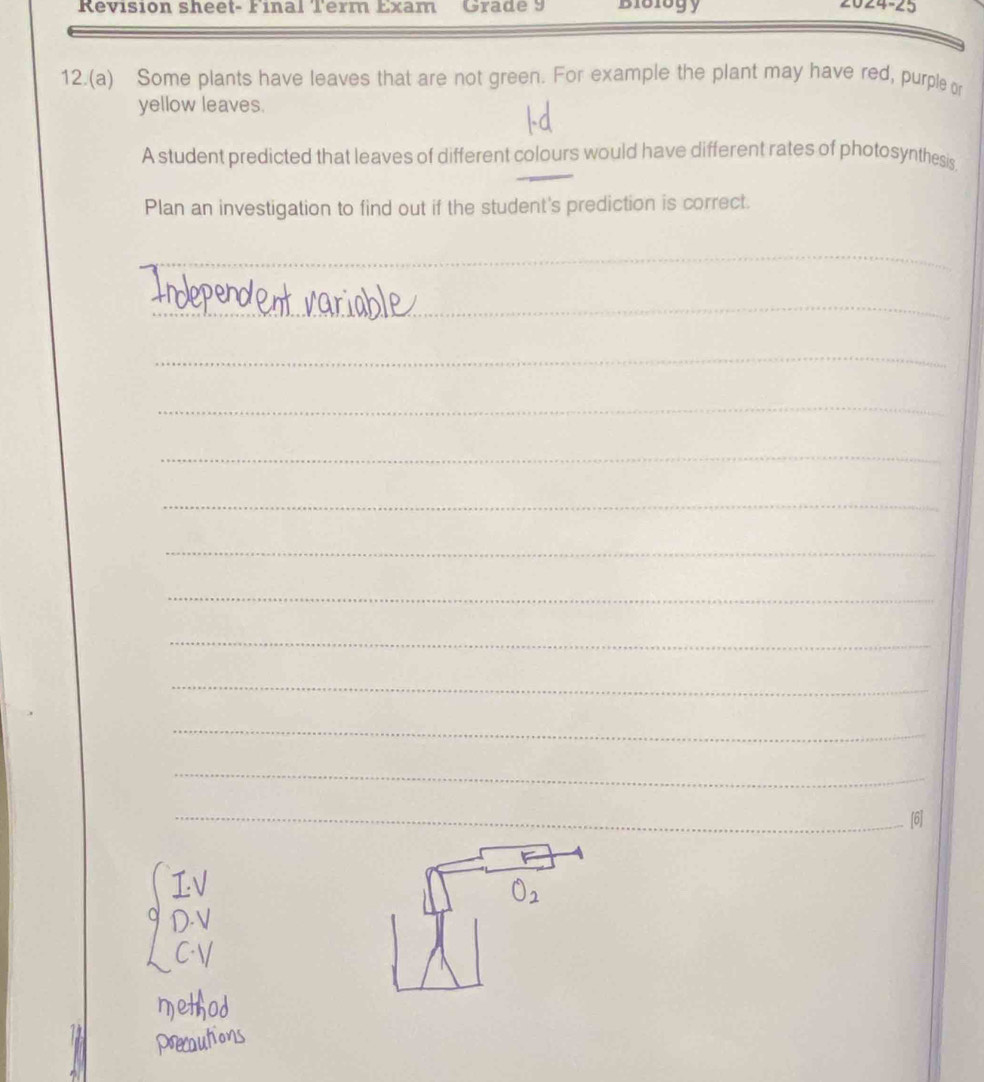 Revision sheet- Final Term Exam Grade 9 Biology 2024-25
12.(a) Some plants have leaves that are not green. For example the plant may have red, purple or
yellow leaves.
I.d
A student predicted that leaves of different colours would have different rates of photosynthesis.
Plan an investigation to find out if the student's prediction is correct.
Independent variable
[6]
I.V
D.V
C.V
method
precautions
O₂